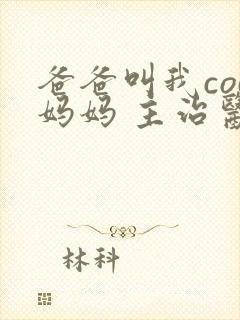 爸爸叫我co
妈妈 主治
林科